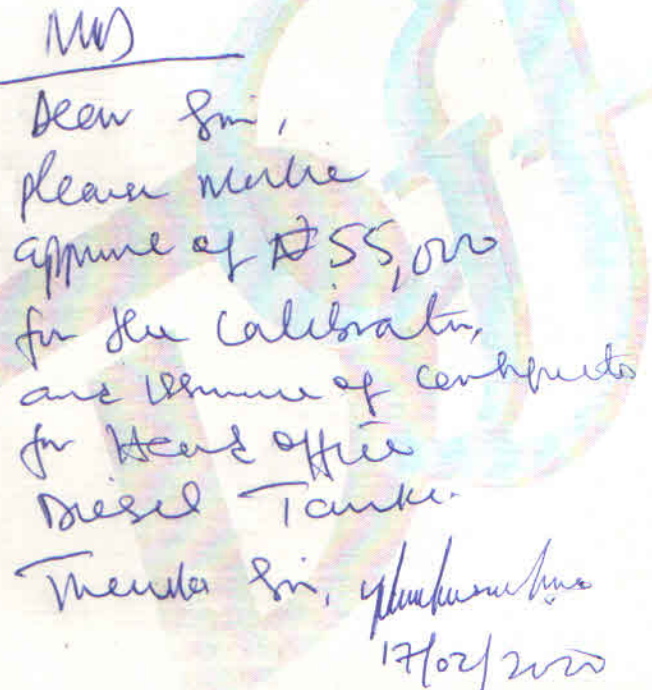 MD
Dear Sir,
please
approve of ₦55,000
for the calibration,
and issuance of certificate
for Head office
Diesel Tank.
Thanks Sir,
17/02/2020